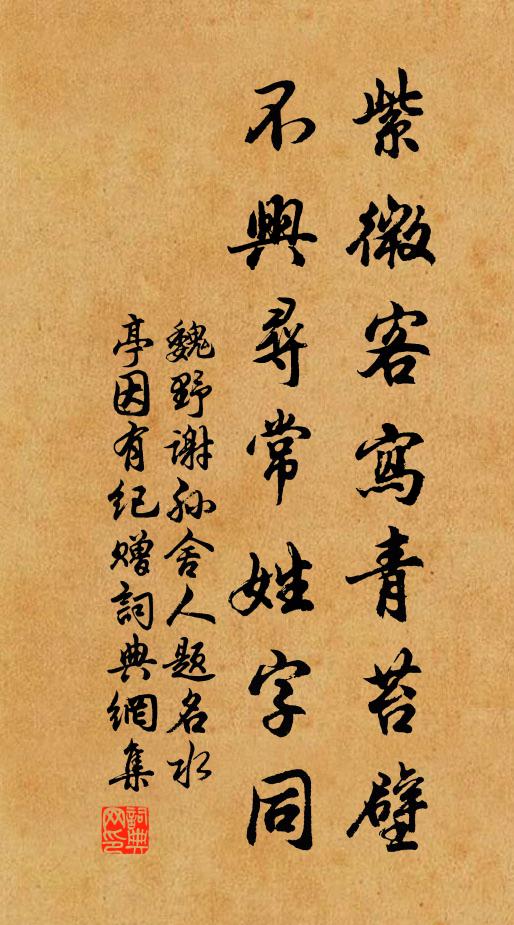 紫微客寫青苔壁
不興尋常姓字同
魏野谢孙舍人題名水
亭因有纪赠詞典網集
詞典网印